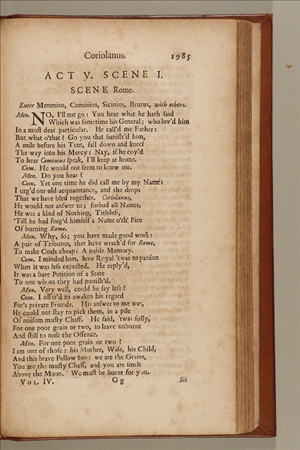 Coriolanus. 1985
ACT V. SCENE I.
SCENE Rome.
Enter Menenius, Cominius, Sicinius, Brutus, with others.
Men. NO, I'll not go: You hear what he hath said
Which was sometime his General; who lov'd him
In a most dear particular. He call'd me Father:
But what o'that? Go you that banish'd him,
A mile before his Tent, fall down and kneel
The way into his Mercy: Nay, if he coy'd
To hear Cominius speak, I'll keep at home.
Com. He would not seem to know me.
Men. Do you hear?
Com. Yet one time he did call me by my Name:
I urg'd our old acquaintance, and the drops
That we have bled together. Coriolanus,
He would not answer to; forbad all Names,
He was a kind of Nothing, Titleless,
'Till he had forg'd himself a Name o'th' Fire
Of burning Rome.
Men. Why, so; you have made good work:
A pair of Tribunes, that have wrack'd for Rome,
To make Coals cheap: A noble Memory.
Com. I minded him, how Royal 'twas to pardon
When it was less expected. He reply'd,
It was a bare Petition of a State
To one whom they had punish'd.
Men. Very well, could he say less?
Com. I offer'd to awaken his regard
For's private Friends. His answer to me was,
He could not stay to pick them, in a pile
Of noisom musty Chaff. He said, 'twas folly,
For one poor grain or two, to leave unburnt
And still to nose th' Offence.
Men. For one poor grain or two?
I am one of those: his Mother, Wife, his Child,
And this brave Fellow too: we are the Grains,
You are the musty Chaff, and you are smelt
Above the Moon. We must be burnt for you.
VOL. IV. Gg Sic